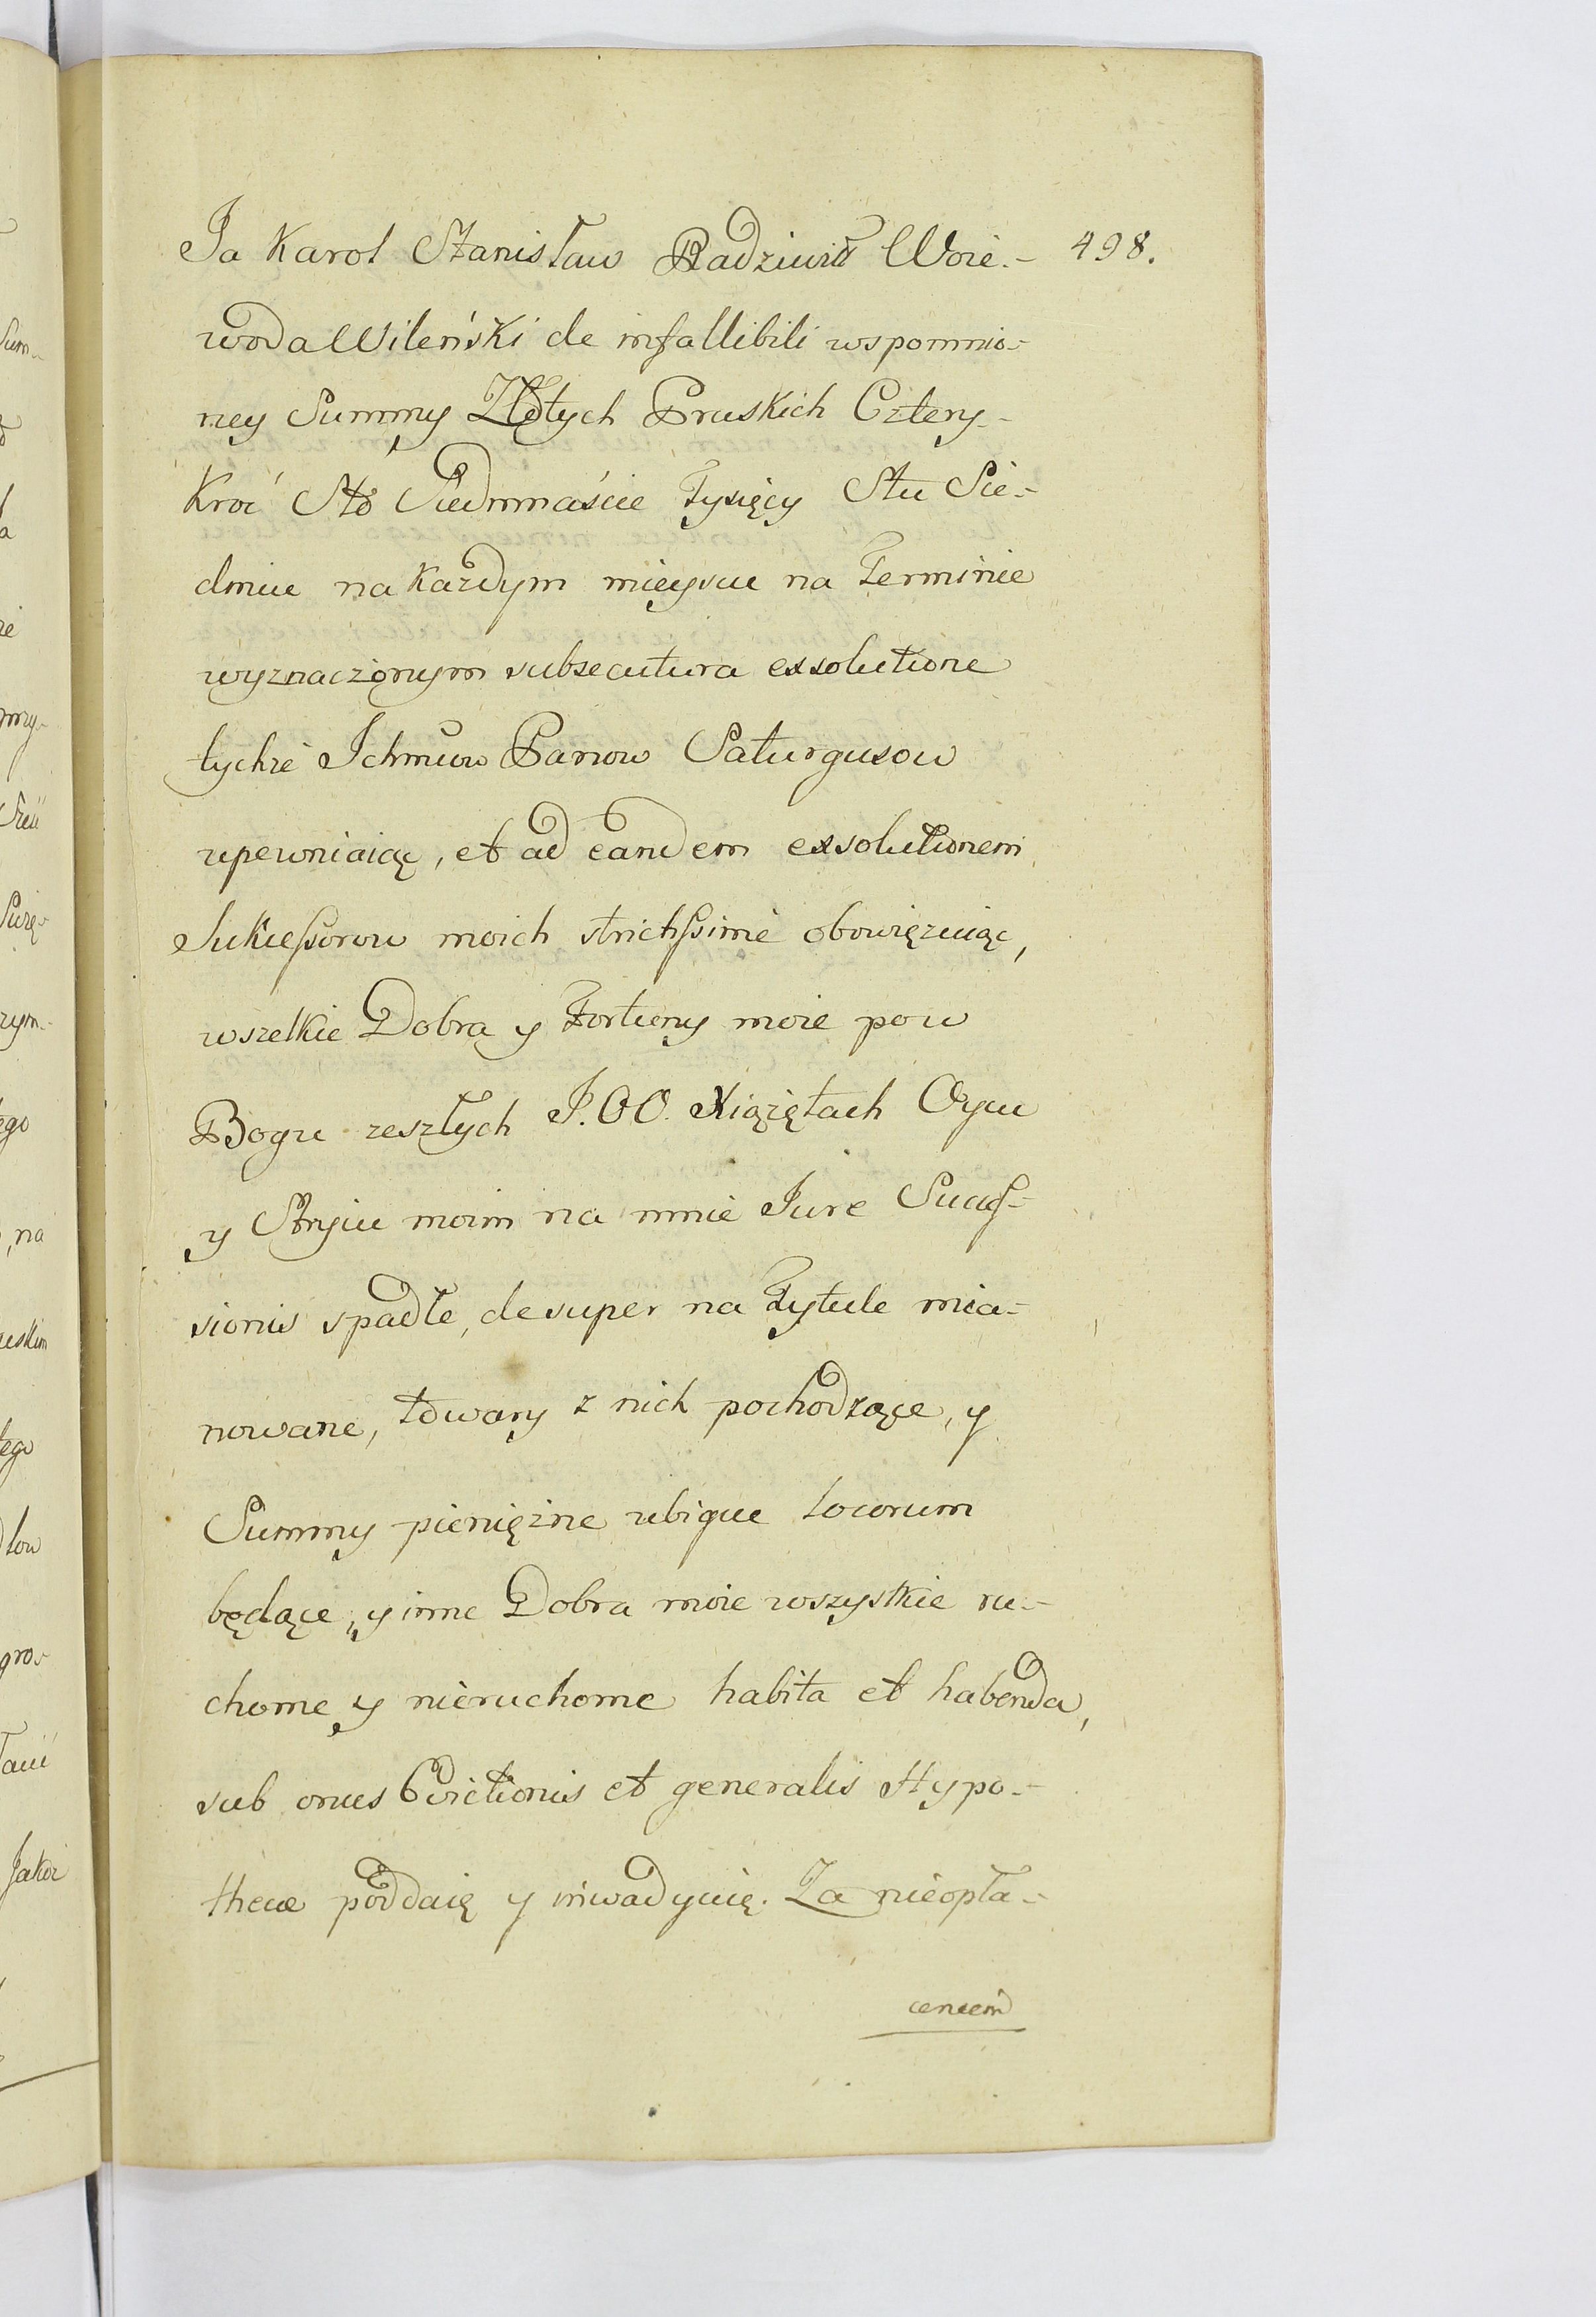 498.
Ja Karol Stanisław Radziwiłł Woie-
woda Wileński de infallibili wspomnio-
ney Summy Złotych Pruskich Cztery-
kroć Sto Siedmnaście Tysięcy Stu Sie-
dmiu na każdym mieyscu na Terminie
wyznaczonym subsecutura exsolutione
tychże Ichmciow Panow Saturgusow
upewniaiąc, et ad eandem exsolutionem
Sukcessorow moich strictissime obowięzuiąc,
wszelkie Dobra y Fortuny moie po w
Bogu zeszłych J.OO. Xiążętach Oycu
y Stryiu moim na mnie Jure Succes-
sionis spadłe, desuper na Tytule mia-
nowane, towary z nich pochodzące, y
Summy pieniężne ubique locorum
będące, y inne Dobra moie wszystkie ru-
chome y nieruchome habita et habenda,
sub onus Evictionis et generalis Hypo-
thecæ poddaię y inwadyuię. Za nieopła-
ceniem